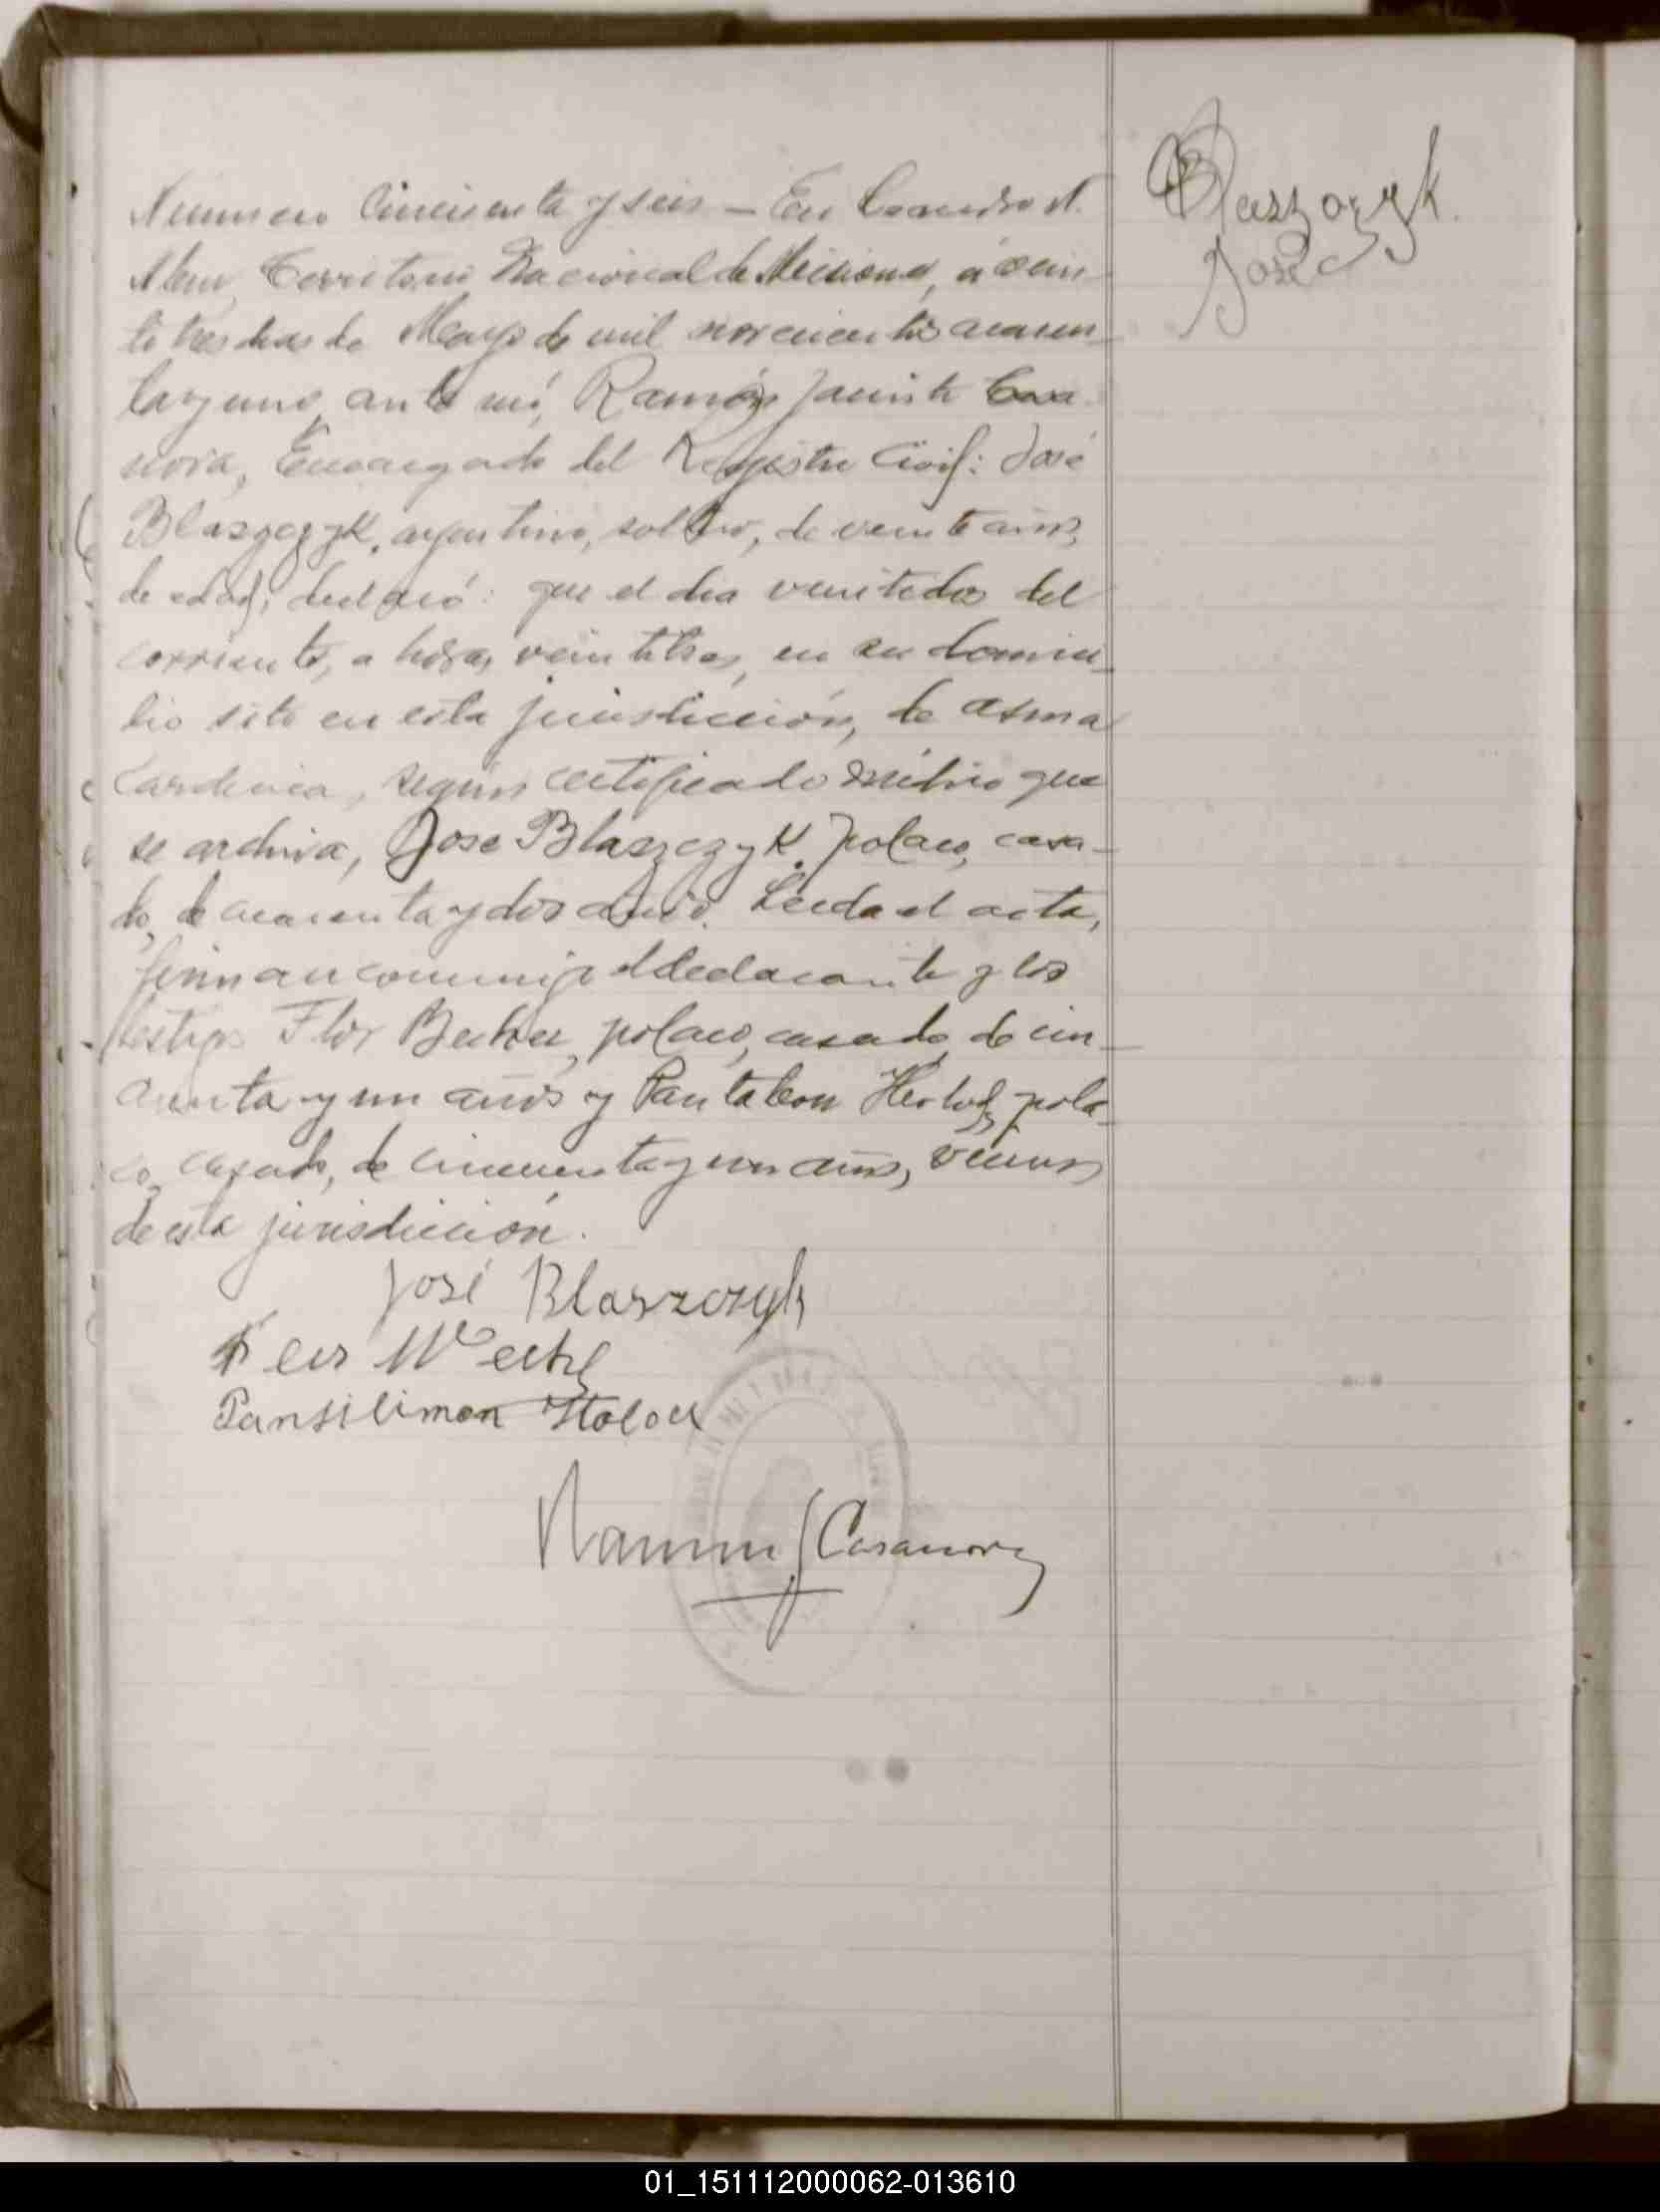 Blaszczyk.
José
Numero Cincuenta y seis — En Leandro N.
Alem, Territorio Nacional de Misiones, á vein-
te tres dias de Mayo de mil novecientos cuaren-
ta y uno, ante mí, Ramón Jacinto Casa-
nova, Encargado del Registro Civil: José
Blaszczyk, argentino, soltero, de veinte años,
de edad; declaró: que el dia veintidos del
corriente, a horas veintitres, en su domici-
lio sito en esta jurisdicción, de asma
cardiaca, según certificado médico que
se archiva, Jose Blaszczyk, polaco, casa-
do, de cuarenta y dos años. Leida el acta,
firman conmigo el declarante y los
testigos Flor Becher, polaco, casado, de cin-
cuenta y un años y Pantaleon Holod, pola-
co, casado, de cincuenta y un años, vecinos
de esta jurisdicción.
José Blaszczyk
Pansilimon Holod
Ramon J Casanova
01_151112000062-013610